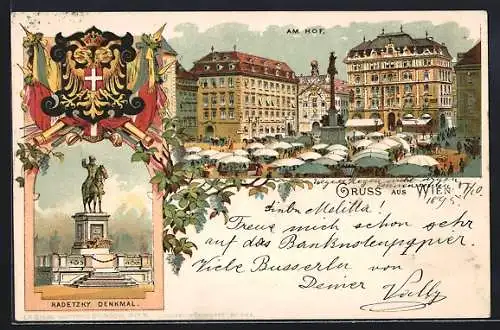 AM HOF.
GRUSS AUS WIEN
7/10
1895
Liebe Melitta!
Freue mich schon sehr
auf das Banknotenpapier.
Viele Busserln von
Deiner Vally
RADETZKY DENKMAL.